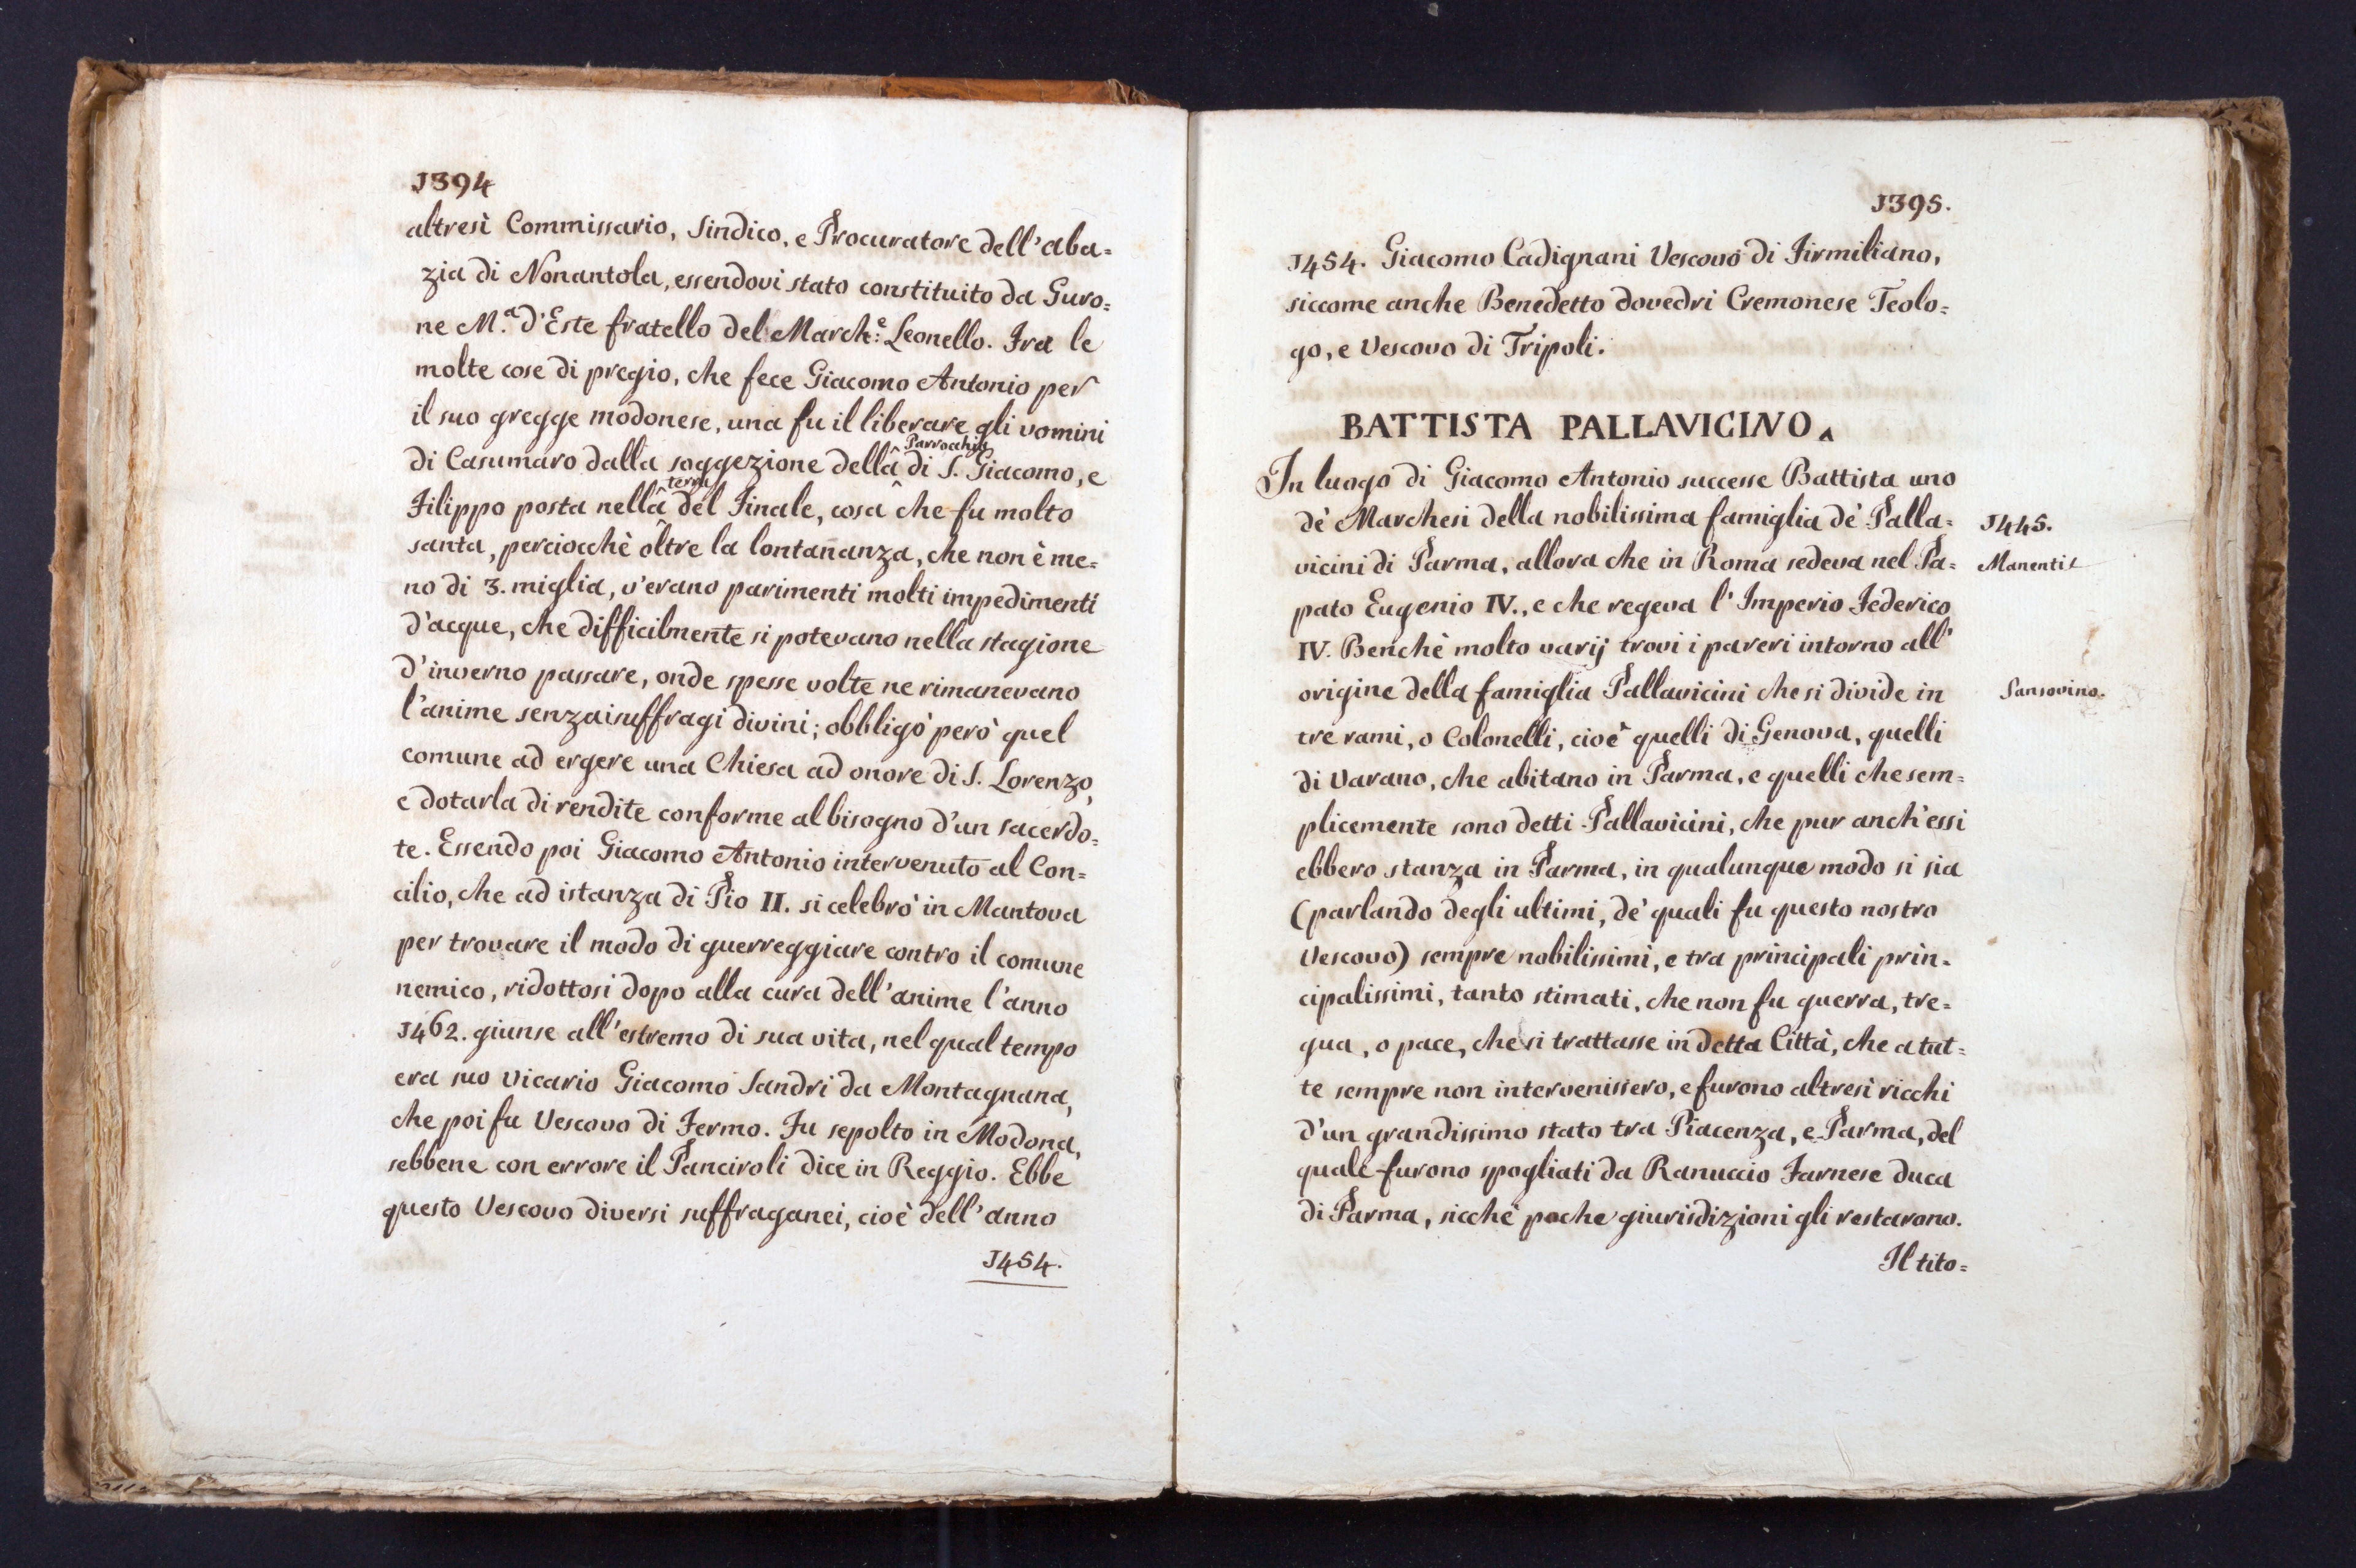 1394
altresì Commissario, Sindico, e Procuratore dell'aba=
zia di Nonantola, essendovi stato constituito da Guro=
ne M.ª d'Este fratello del March:ᵉ Leonello. Fra le
molte cose di pregio, che fece Giacomo Antonio per
il suo gregge modonese, una fu il liberare gli uomini
Parrocchia
di Casumaro dalla soggezione della^ di S. Giacomo, e
terra
Filippo posta nella^ del Finale, cosa^ che fu molto
santa, perciocchè oltre la lontananza, che non è me=
no di 3. miglia, v'erano parimenti molti impedimenti
d'acque, che difficilmente si potevano nella stagione
d'inverno passare, onde spesse volte ne rimanevano
l'anime senza i suffragi divini; obbligò però quel
comune ad ergere una Chiesa ad onore di S. Lorenzo,
e dotarla di rendite conforme al bisogno d'un sacerdo=
te. Essendo poi Giacomo Antonio intervenuto al Con=
cilio, che ad istanza di Pio II. si celebrò in Mantova
per trovare il modo di guerreggiare contro il comune
nemico, ridottosi dopo alla cura dell'anime l'anno
1462. giunse all'estremo di sua vita, nel qual tempo
era suo Vicario Giacomo Sandri da Montagnana,
che poi fu Vescovo di Fermo. Fu sepolto in Modona,
sebbene con errore il Panciroli dice in Reggio. Ebbe
questo Vescovo diversi suffraganei, cioè dell'anno
1454.
1395.
1454. Giacomo Cadignani Vescovo di Firmiliano,
siccome anche Benedetto dovedri Cremonese Teolo=
go, e Vescovo di Tripoli.
BATTISTA PALLAVICINO^
In luogo di Giacomo Antonio successe Battista uno
de' Marchesi della nobilissima famiglia de' Palla=
1445.
vicini di Parma, allora che in Roma sedeva nel Pa=
Manenti
pato Eugenio IV., e che regeva l'Imperio Federico
IV. Benchè molto varij trovi i pareri intorno all'
origine della famiglia Pallavicini che si divide in
Sansovino.
tre rami, o Colonelli, cioè quelli di Genova, quelli
di Varano, che abitano in Parma, e quelli che sem=
plicemente sono detti Pallavicini, che pur anch'essi
ebbero stanza in Parma, in qualunque modo si sia
(parlando degli ultimi, de' quali fu questo nostro
Vescovo) sempre nobilissimi, e tra principali prin=
cipalissimi, tanto stimati, che non fu guerra, tre=
gua, o pace, che si trattasse in detta Città, che a tut=
te sempre non intervenissero, e furono altresì ricchi
d'un grandissimo stato tra Piacenza, e Parma, del
quale furono spogliati da Ranuccio Farnese Duca
di Parma, sicchè poche giurisdizioni gli restarono.
Il tito=